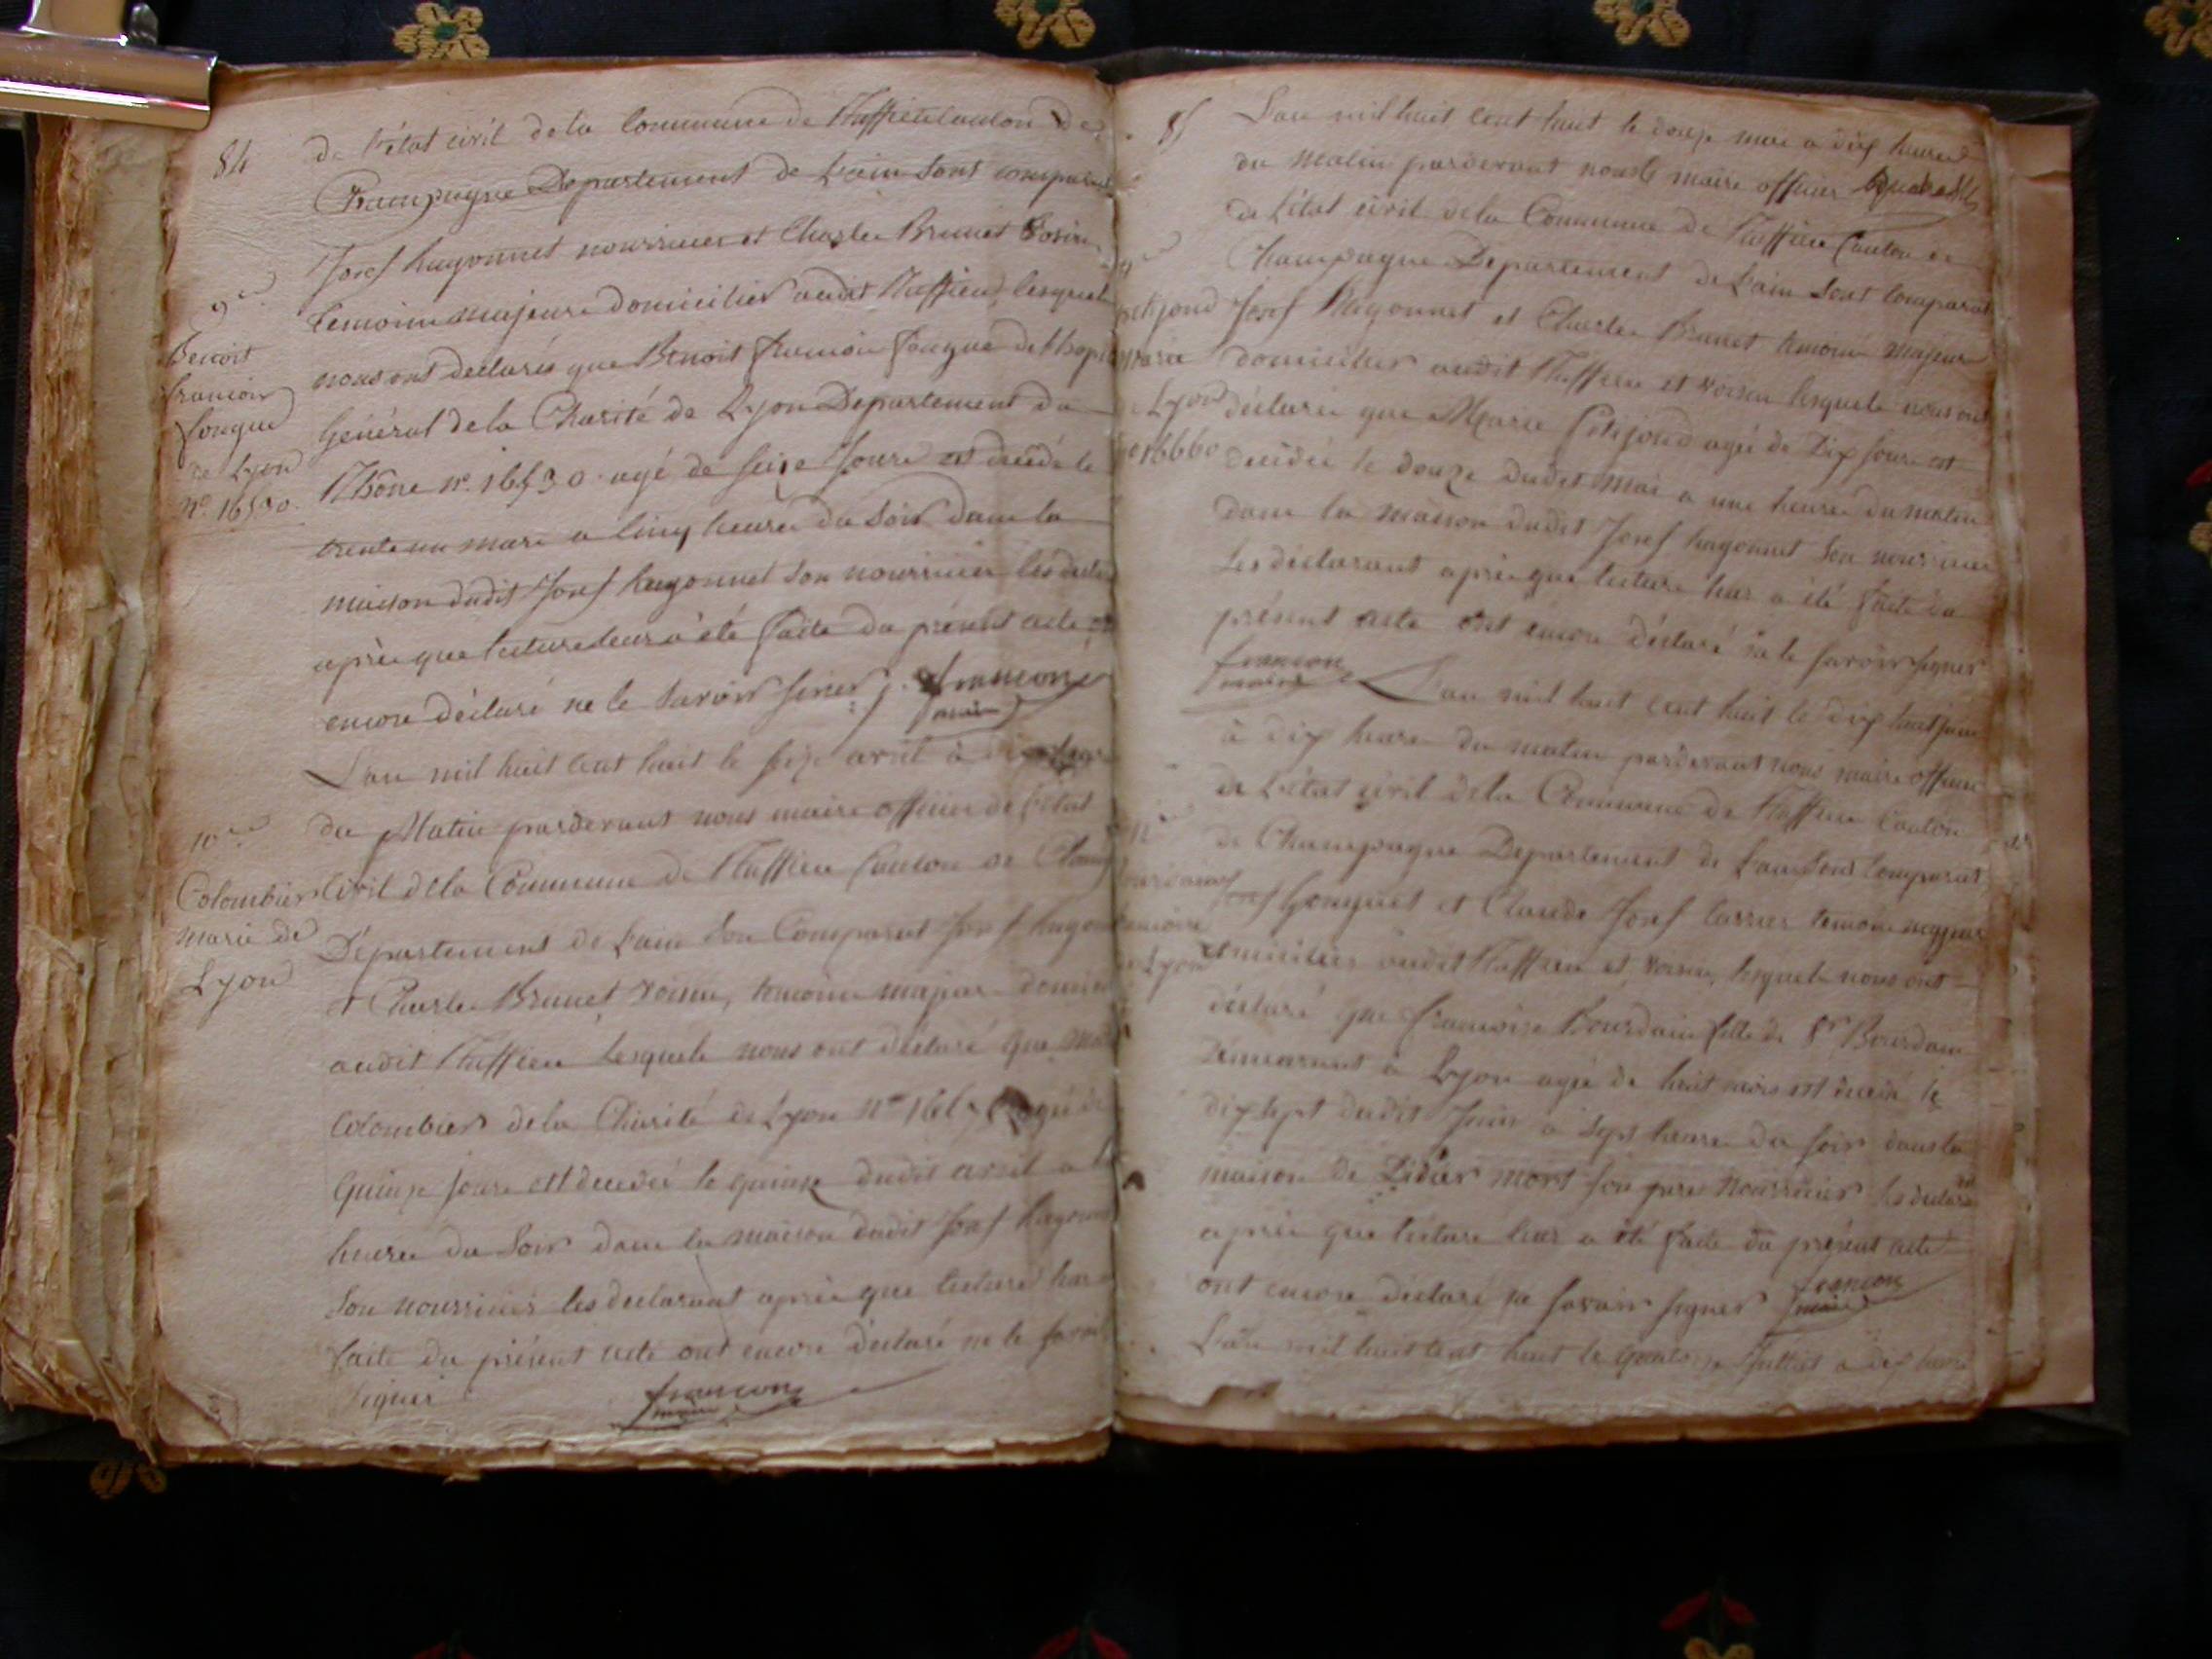 84
de l'état civil de la Commune de Ruffieu Canton De
Champagne Departement de Lain sont comparut
Josef hugonnet nourricier et Charle Brunet Voisin
9e
temoins majeure domicilier audit Ruffieu lesquel
Benoit
nous ont declarés que Benoit francois fongue de lhopi
francois
fongue
Général de la Charité de Lyon Departement du
de Lyon
No. 16530.
Rhône no. 16530 agé de seize Jours est decédé le
trente un mars a cinq heures du Soir dans la
maison dudit Josef hugonnet son nourricier les decla
après que lecture leur à été faite du présent acte
encore déclaré ne le savoir siner j. francon
maire
L'an mil huit cent huit le seize avril à dix
10e
du Matin pardevant nous maire officier de l'état
Colombier
Civil de la Commune de Ruffieu Canton de Champ
marie de
Lyon
Département de Lain son Comparut Josef hugon
et Charle Brunet voisin, temoins majeur domici
audit Ruffieu lesquels nous ont déclaré que
Colombier de la Charité de Lyon no agé de
quinze jours est decedée le quinze dudit avril a
heures du Soir dans la maison dudit Josef hugonn
son nourricier les declarant après que lecture leur
faite du présent acte ont encore déclaré ne le savoir
signer
francon
maire
85
L'an mil huit cent huit le douze mai a dix heures
du Matin pardevant nous le maire officier
de l'état civil de la Commune de Ruffieu Canton de
Champagne Departement de Lain Sont Comparut
petijond
Josef Hugonnet et Charle Brunet temoins majeur
marie
domicilier audit Ruffieu et voisin lesquels nous ont
Lyon
déclarée que Marie petijond agée de Dix jours est
16660
decédée le douze dudit mai a une heure du matin
dans la maison dudit Josef hugonnet son nourricier
les déclarant après que lecture leur a été faite du
présent acte ont encore déclaré ne le savoir signer
francon
maire
L'an mil huit cent huit le dix huit juin
à dix heures du matin pardevant nous maire officier
de l'état civil de la Commune de Ruffieu Canton
de Champagne Departement de Lain Sont Comparut
Josef Gonguet et Claude Josef Carrier temoin majeur
domicilier audit Ruffieu et voisin, lesquels nous ont
Lyon
déclaré que francoise Bourdain fille de Bourdain
Demeurant a Lyon agée de huit mois est decedé le
dix sept dudit Juin a sept heures du soir dans la
maison de Didier mort son pere nourricier les declara
après que lecture leur a été faite du présent acte
ont encore déclaré ne savoir signer francon
maire
L'an mil huit cent huit le quatorze Juillet a dix heures